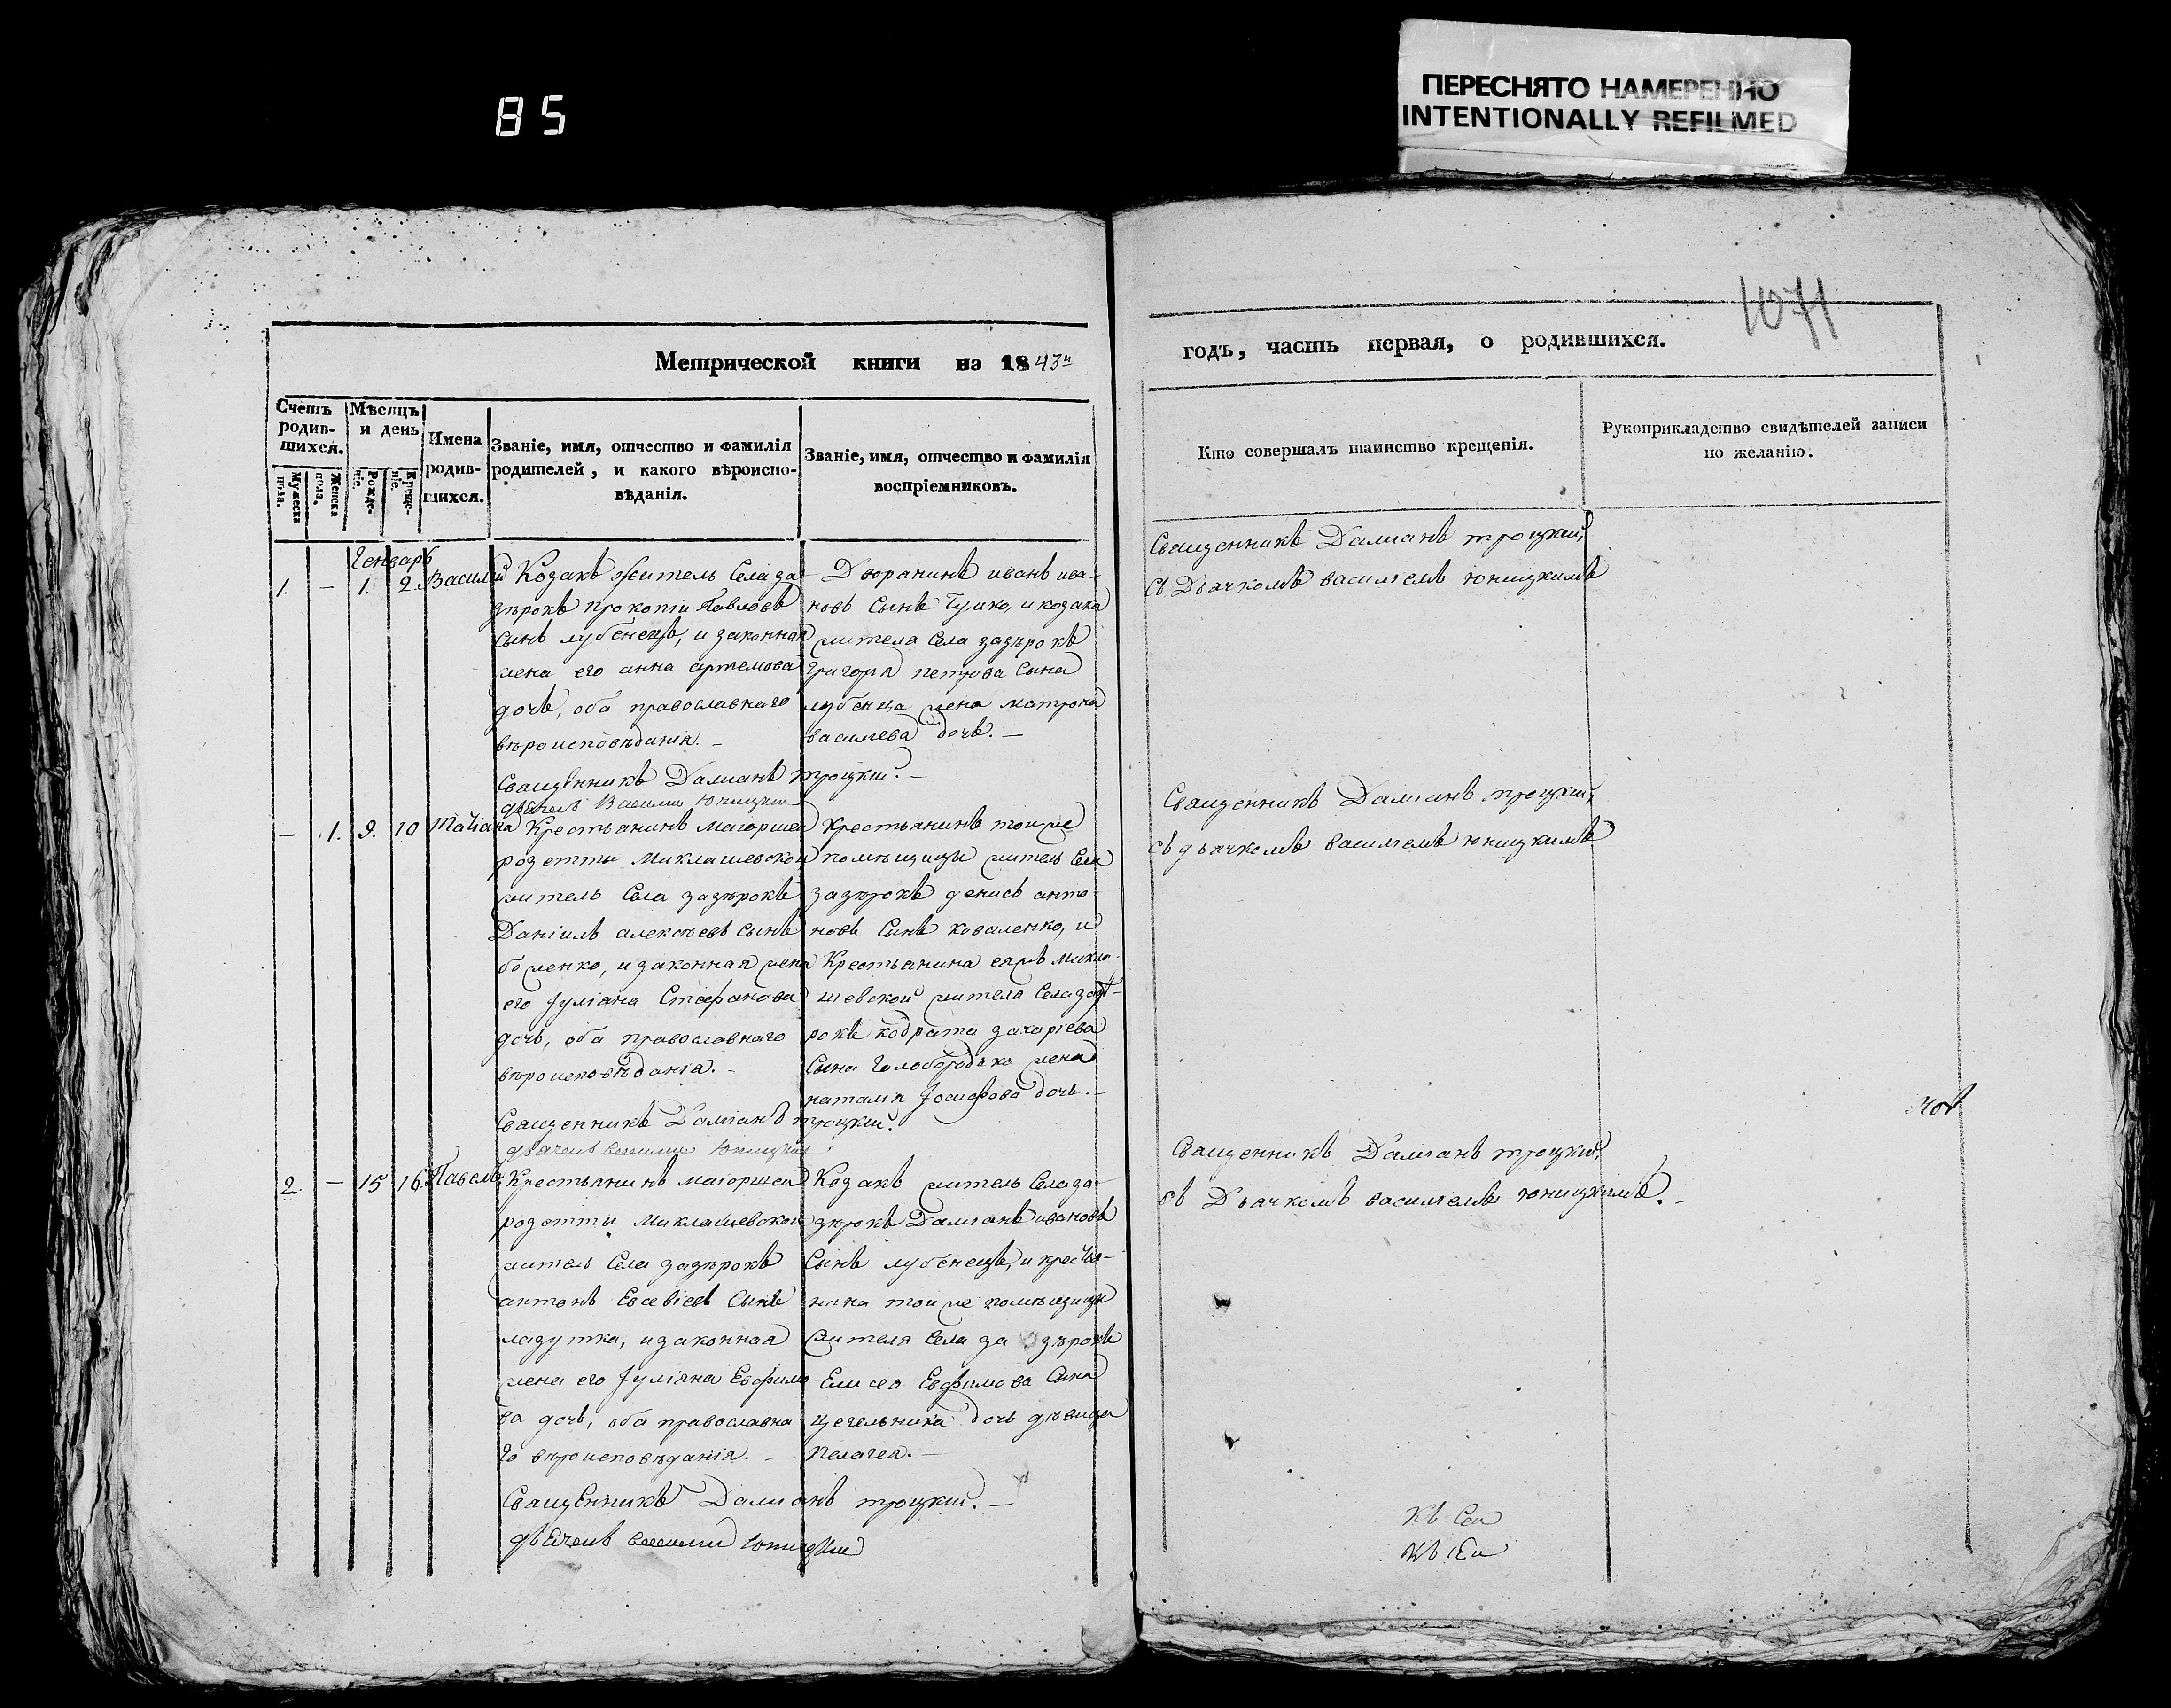 85
ПЕРЕСНЯТО НАМЕРЕННО
INTENTIONALLY REFILMED
1071
Метрической книги на 1843й
годъ, часть первая, о родившихся.
Счетъ родив-шихся.
Мужеска пола.
Женска пола.
Мѣсяцъ и день
Рожде-нія.
Креще-нія.
Имена родив-шихся.
Званіе, имя, отчество и фамилія
родителей, и какого вѣроиспо-
вѣданія.
Званіе, имя, отчество и фамилія
воспріемниковъ.
Кто совершалъ таинство крещенія.
Рукоприкладство свидѣтелей записи
по желанію.
Генварь
1. – 1. 2. Василій
Козакъ житель Села за-
зѣрокъ Прокопій Павловъ
Сынъ лубенецъ, и законная
жена его анна артемова
дочь, оба православнаго
вѣроисповѣданія. –
Дворянинъ иванъ ива-
новъ Сынъ и козака
жителя Села зазѣрокъ
григорія петрова Сына
лубенца жена матрона
василева дочь. –
Священникъ Даміанъ троцкій. –
дьячекъ Василий Юницкий
Священникъ Даміанъ троцкій,
съ Дьячкомъ василіемъ юницкимъ
– 1. 9. 10 Татіана
Крестьянинъ маіоршеи
розетты Миклашевской
житель Села зазѣрокъ
Даніилъ алексѣевъ Сынъ
боженко, и законная жена
его Іуліана Стефанова
дочь, оба православнаго
вѣроисповѣданія. –
Крестьянинъ тойже
помѣщицы житель Села
зазѣрокъ денисъ анто-
новъ Сынъ коваленко, и
Крестьянина еяжъ Микла-
шевской жителя Села зазѣ-
рокъ кодрата захаріева
Сына Голобородька жена
наталія Іосифова дочь. –
Священникъ Даміанъ троцкій.
дьячекъ василий Юницкий
Священникъ Даміанъ троцкій,
съ дьячкомъ василіемъ юницкимъ
2. – 15 16. Павелъ
Крестьянинъ маіоршеи
розетты Миклашевской
житель Села зазѣрокъ
антонъ Евсевіевъ Сынъ
ладутка, и законная
жена его Іуліана Евфимо-
ва дочь, оба православна
го вѣроисповѣданія. –
Козакъ житель Села за-
зѣрокъ Даміанъ ивановъ
Сынъ лубенецъ, и крестья-
нина тойже помѣщицы
жителя Села за зѣрокъ
Елисея Евфимова Сына
цегельника дочь дѣвица
Пелагея. –
Священникъ Даміанъ троцкій. –
дьячекъ василий Юницкий
Священникъ Даміанъ троцкій,
съ Дьячкомъ василіемъ юницкимъ. –